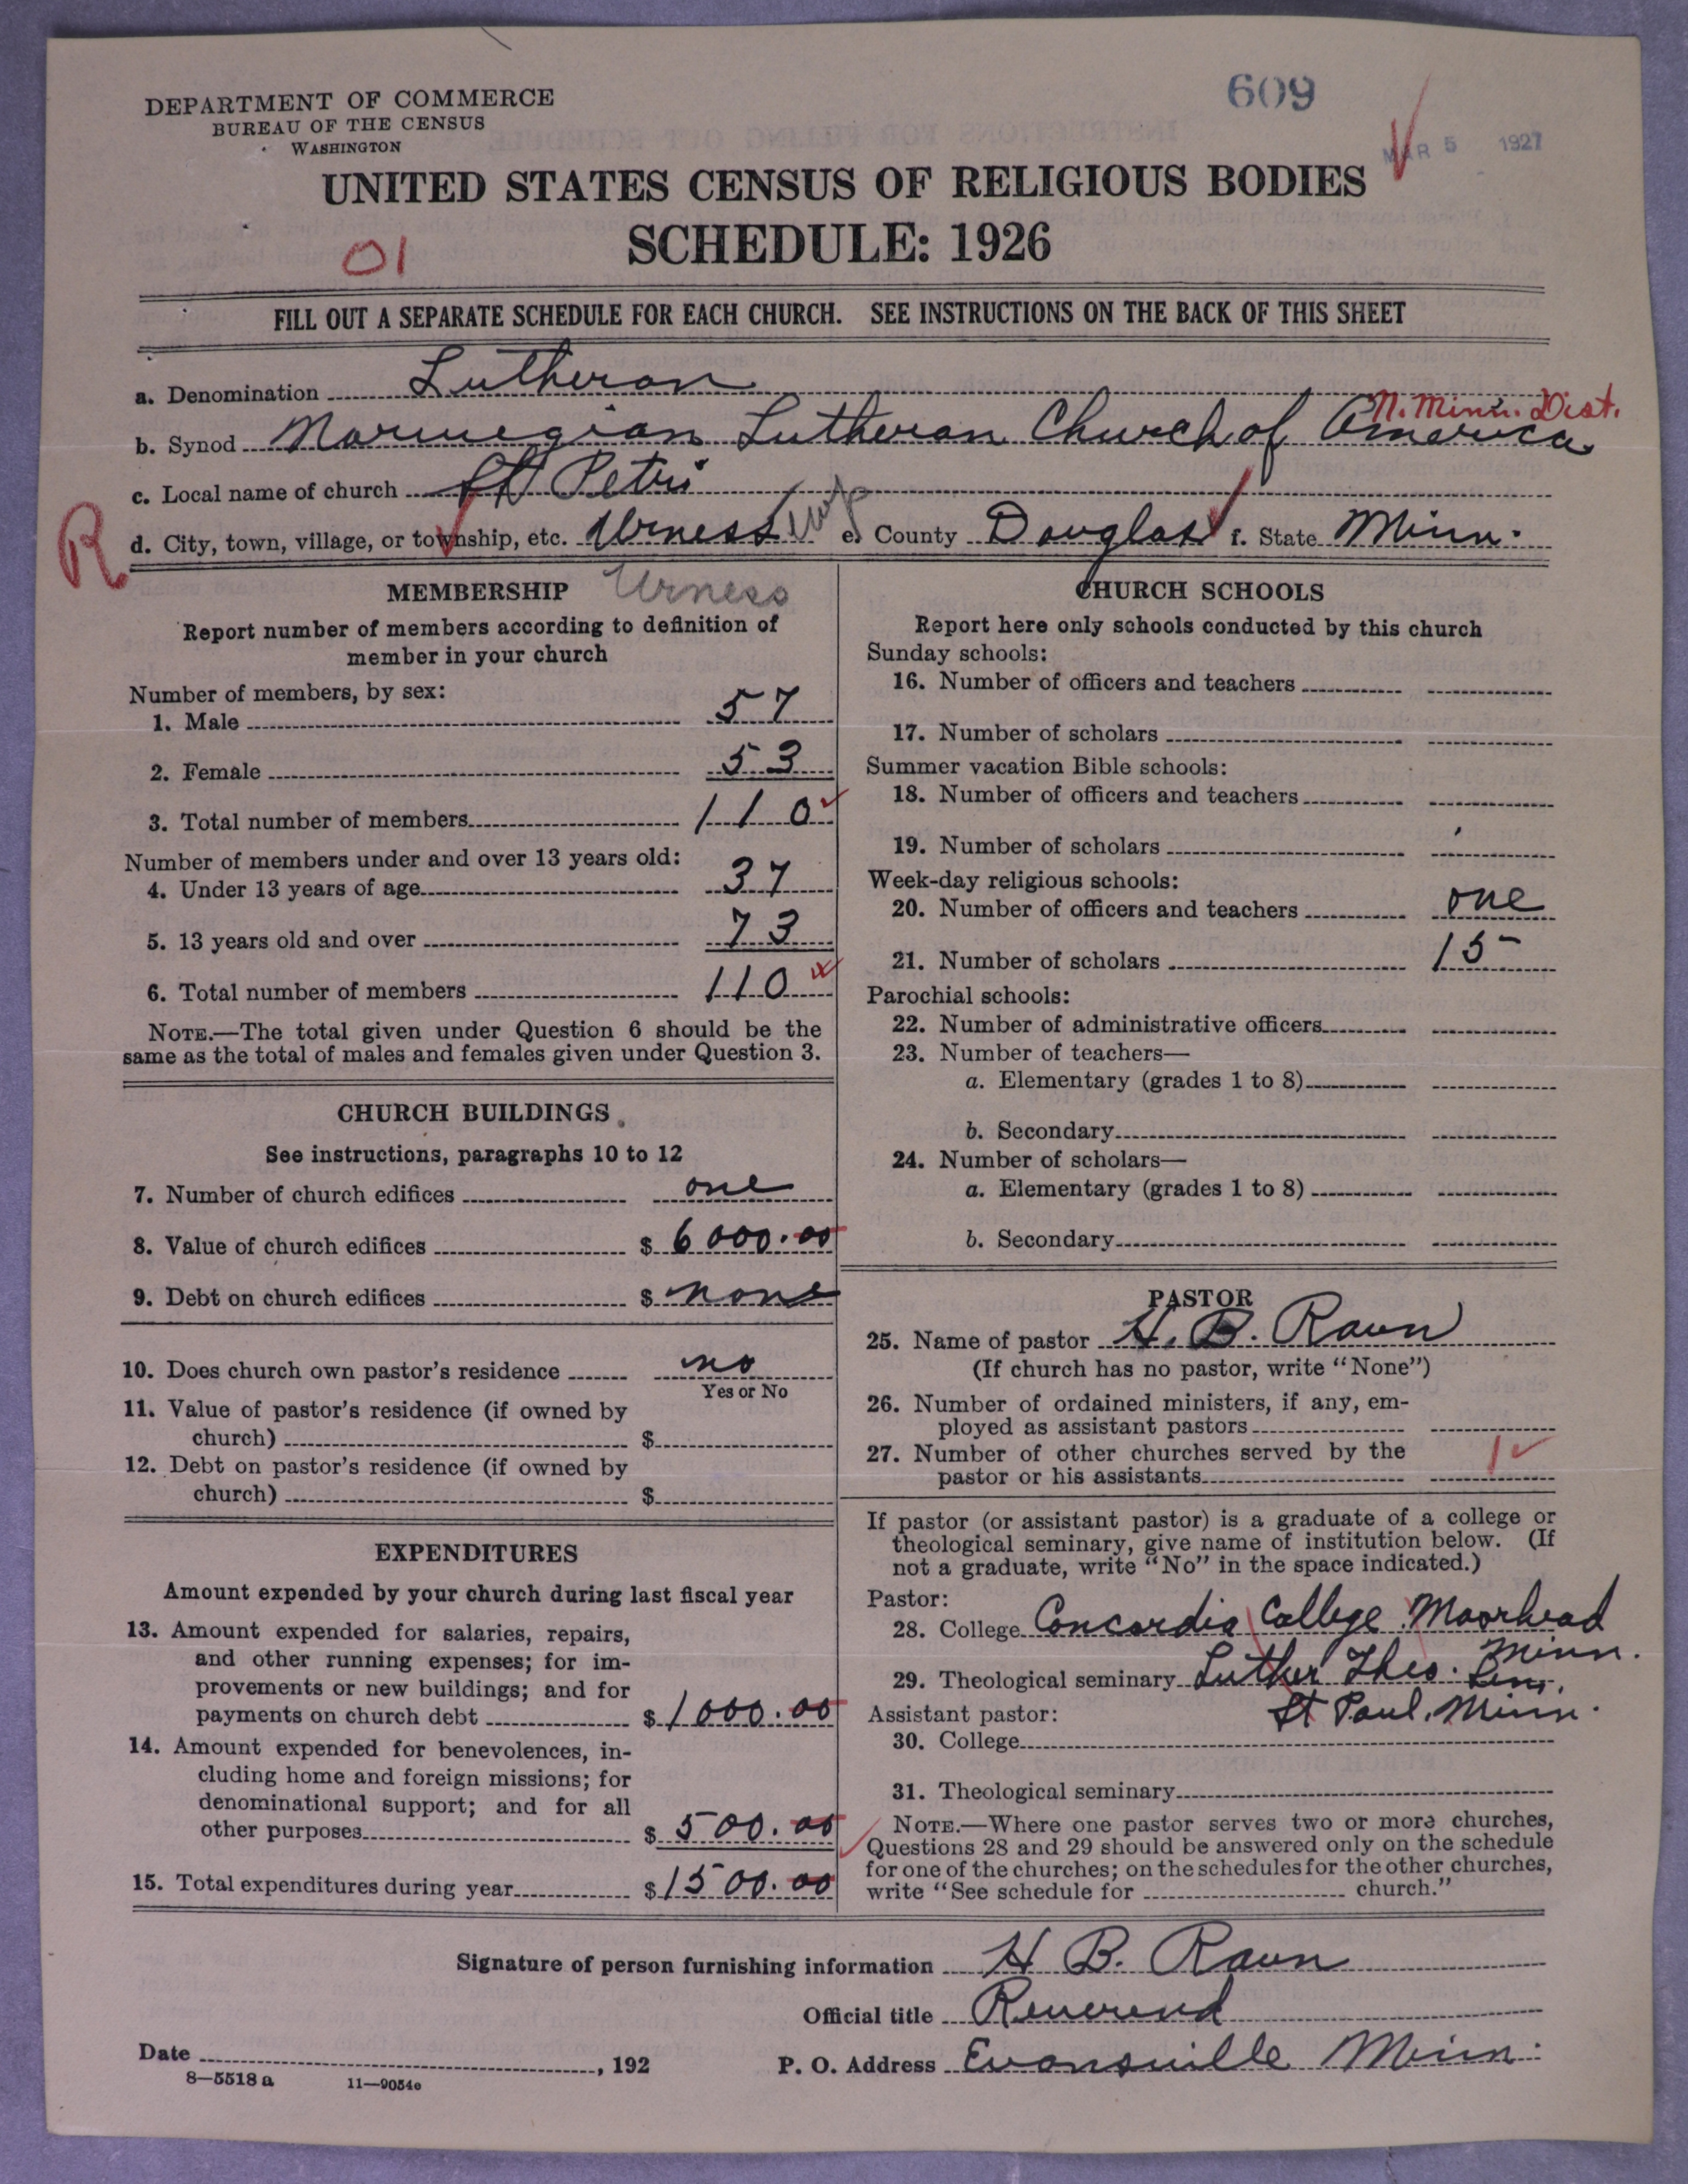 609
MAR 5 1927
DEPARTMENT OF COMMERCE
BUREAU OF THE CENSUS
WASHINGTON
UNITED STATES CENSUS OF RELIGIOUS BODIES
SCHEDULE: 1926
01
FILL OUT A SEPARATE SCHEDULE FOR EACH CHURCH. SEE INSTRUCTIONS ON THE BACK OF THIS SHEET
a. Denomination Lutheran
N. Minn. Dist.
b. Synod Norwegian Lutheran Church of America
c. Local name of church St Petri
R
d. City, town, village, or township, etc. Urness twp e. County Douglas f. State Minn.
MEMBERSHIP Urness
Report number of members according to definition of
member in your church
Number of members, by sex:
1. Male 57
2. Female 53
3. Total number of members 110
Number of members under and over 13 years old:
4. Under 13 years of age 37
5. 13 years old and over 73
6. Total number of members 110
NOTE.—The total given under Question 6 should be the
same as the total of males and females given under Question 3.
CHURCH BUILDINGS
See instructions, paragraphs 10 to 12
7. Number of church edifices one
8. Value of church edifices $ 6000.00
9. Debt on church edifices $ none
10. Does church own pastor's residence no
Yes or No
11. Value of pastor's residence (if owned by
church) $
12. Debt on pastor's residence (if owned by
church) $
EXPENDITURES
Amount expended by your church during last fiscal year
13. Amount expended for salaries, repairs,
and other running expenses; for im-
provements or new buildings; and for
payments on church debt $ 1000.00
14. Amount expended for benevolences, in-
cluding home and foreign missions; for
denominational support; and for all
other purposes $ 500.00
15. Total expenditures during year $ 1500.00
CHURCH SCHOOLS
Report here only schools conducted by this church
Sunday schools:
16. Number of officers and teachers
17. Number of scholars
Summer vacation Bible schools:
18. Number of officers and teachers
19. Number of scholars
Week-day religious schools:
20. Number of officers and teachers one
21. Number of scholars 15
Parochial schools:
22. Number of administrative officers
23. Number of teachers—
a. Elementary (grades 1 to 8)
b. Secondary
24. Number of scholars—
a. Elementary (grades 1 to 8)
b. Secondary
PASTOR
25. Name of pastor H. B. Raun
(If church has no pastor, write "None")
26. Number of ordained ministers, if any, em-
ployed as assistant pastors
27. Number of other churches served by the
pastor or his assistants 1
If pastor (or assistant pastor) is a graduate of a college or
theological seminary, give name of institution below. (If
not a graduate, write "No" in the space indicated.)
Pastor:
28. College Concordia College Moorhead
Minn.
29. Theological seminary Luther Theo. Sem.
Assistant pastor: St Paul, Minn.
30. College
31. Theological seminary
NOTE.—Where one pastor serves two or more churches,
Questions 28 and 29 should be answered only on the schedule
for one of the churches; on the schedules for the other churches,
write "See schedule for church."
Signature of person furnishing information H B. Raun
Official title Reverend
Date , 192
P. O. Address Evansville Minn.
8—5518 a 11—9054e